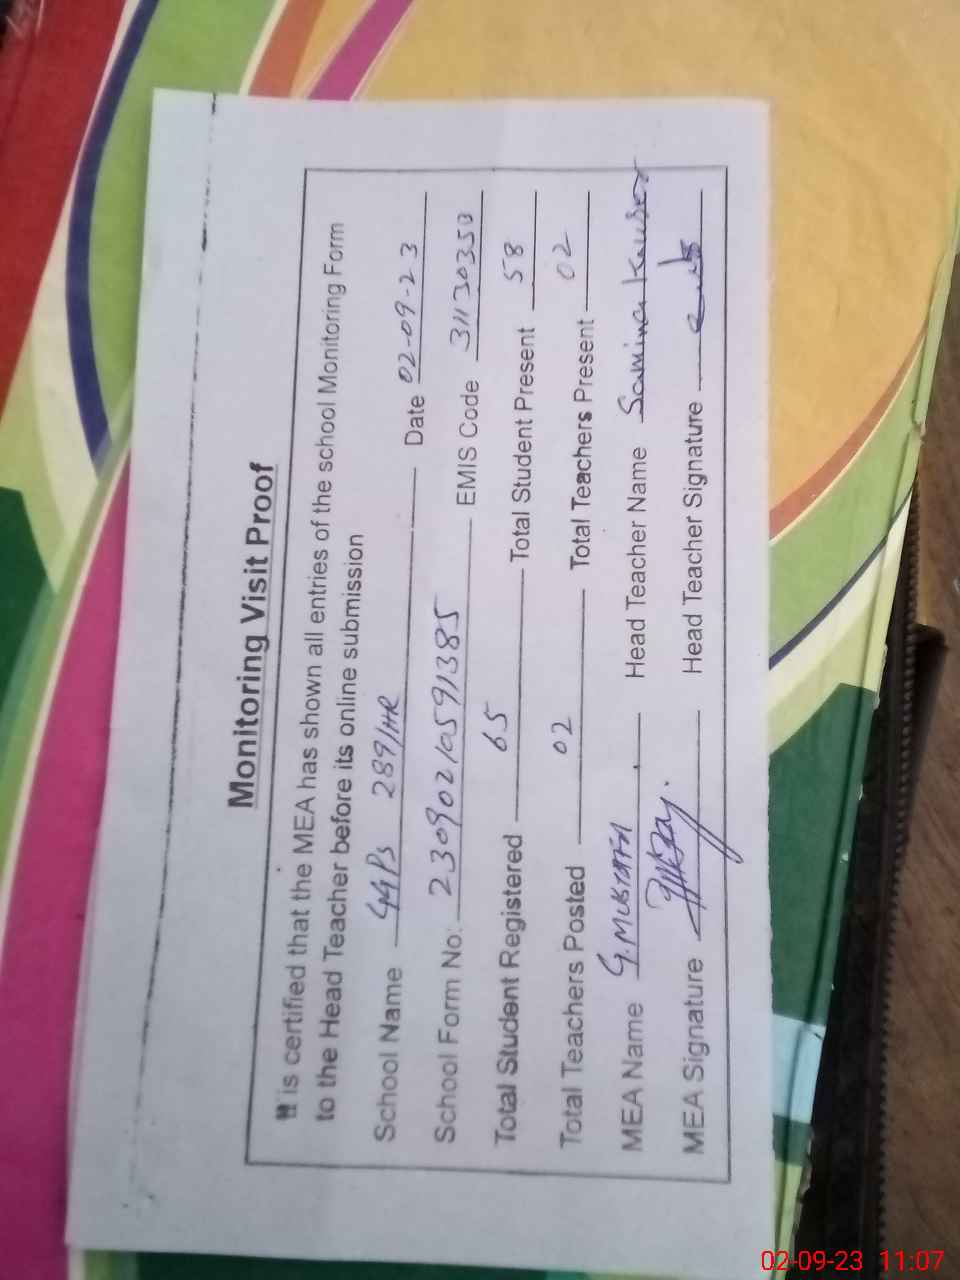 Monitoring Visit Proof
It is certified that the MEA has shown all entries of the school Monitoring Form
to the Head Teacher before its online submission
School Name GGPS 289/HR Date 02-09-23
School Form No: 23090210591385 EMIS Code 31130350
Total Student Registered 65 Total Student Present 58
Total Teachers Posted 02 Total Teachers Present 02
MEA Name G.MUSTAFA Head Teacher Name Samina Kauser
MEA Signature Head Teacher Signature
02-09-23 11:07